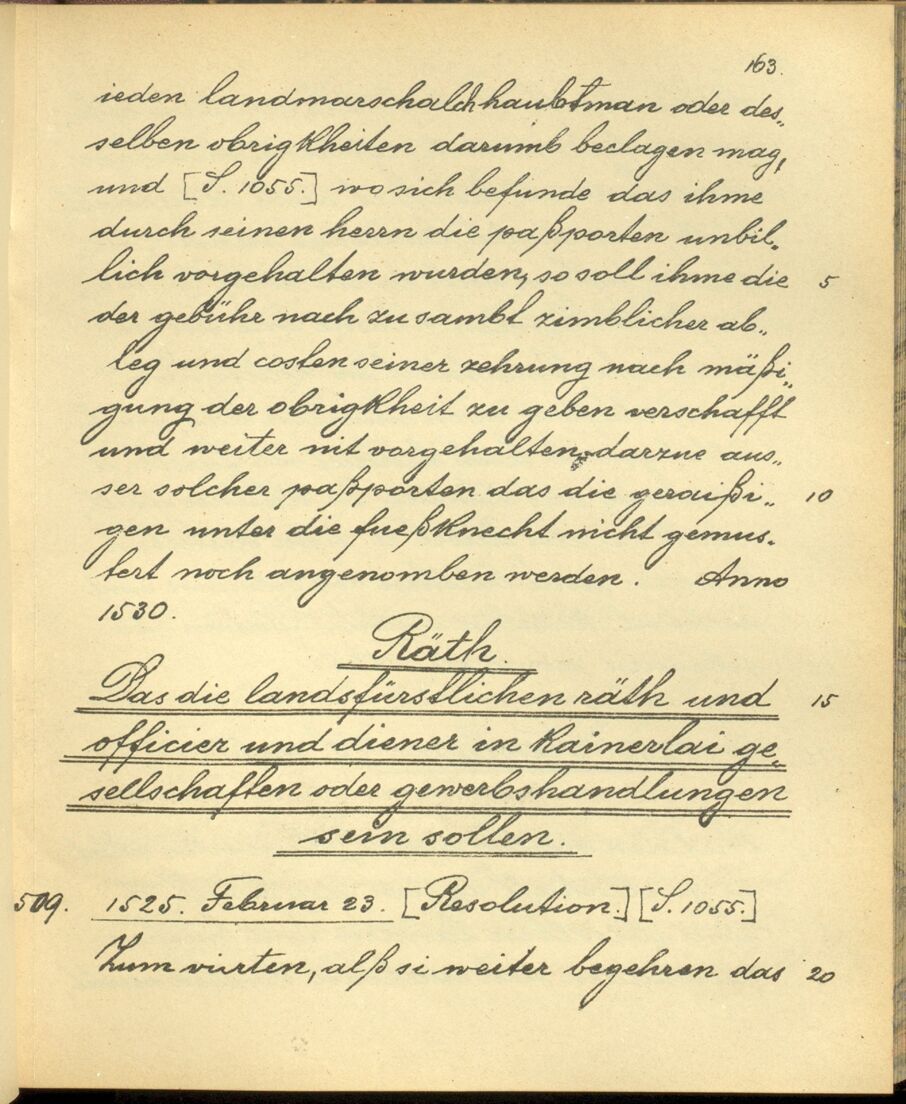 163.
ieden landmarschalch haubtman oder des„
selben obrigkheiten darumb beclagen mag,
und [S. 1055.] wo sich befunde das ihme
durch seinen herrn die paßporten unbil„
lich vorgehalten wurden, so soll ihme die 5
der gebühr nach zu sambt zimblicher ab„
leg und costen seiner zehrung nach mäßi„
gung der obrigkheit zu geben verschafft
und weiter nit vorgehalten, darzue aus„
ser solcher paßporten das die geraißi„ 10
gen unter die fueßknecht nicht gemus„
tert noch angenomben werden. Anno
1530.
Räth.
Das die landsfürstlichen räth und 15
officier und diener in kainerlai ge„
sellschaften oder gewerbshandlungen
sein sollen.
509. 1525. Februar 23. [Resolution.] [S. 1055.]
Zum vierten, alß si weiter begehren das 20